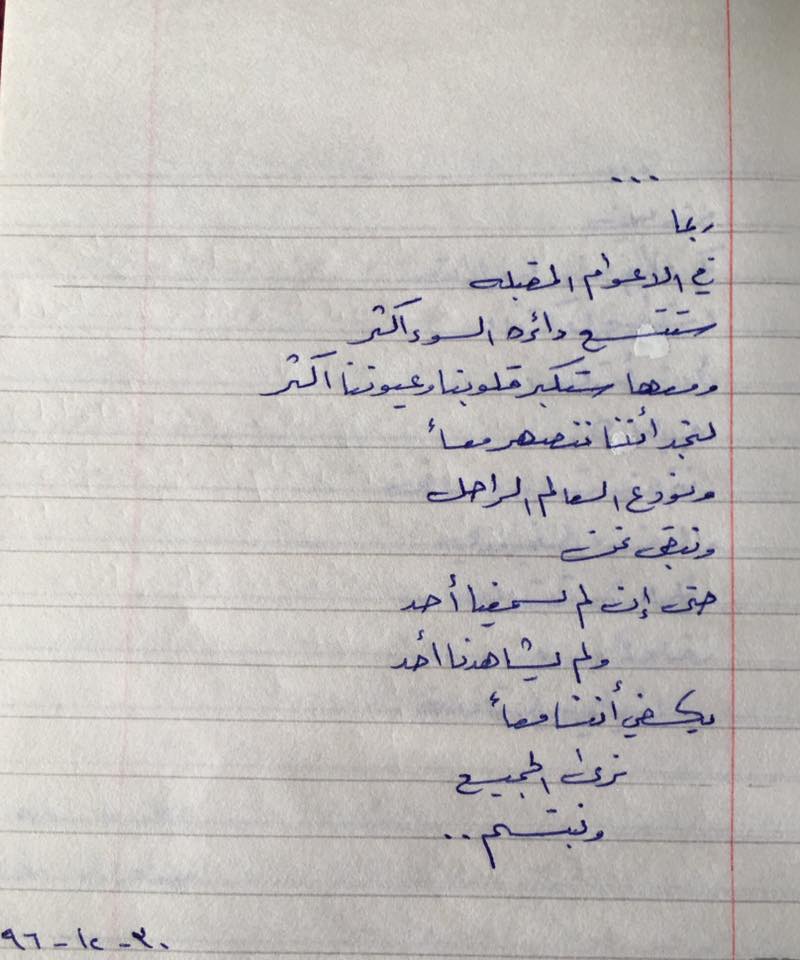 ...
ربما
في الاعوام المقبله
ستتسع دائره السوء أكثر
ومعها ستكبر قلوبنا وعيوننا اكثر
لنجد أننا ننصهر معاً
ونودع العالم الراحل
ونبقى نحن
حتى إن لم يسعفنا أحد
ولم يشاهدنا أحد
يكفي أننا معاً
نرى الجميع
ونبتسم..
٣٠-١٢-٩٦